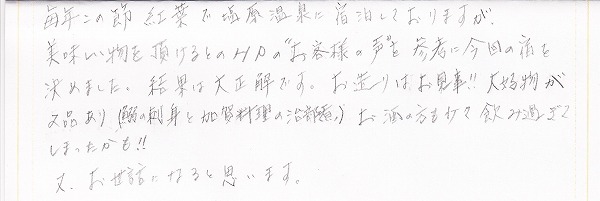 毎年この節 紅葉で塩原温泉に宿泊しておりますが、
美味しい物を頂けるとのHPの"お客様の声"を参考に今回の宿を
決めました。結果は大正解です。お造りはお見事!! 大好物が
2品あり(鰯の刺身と加賀料理の治部煮) お酒の方も少々飲み過ぎて
しまったかも!!
又、お世話になると思います。